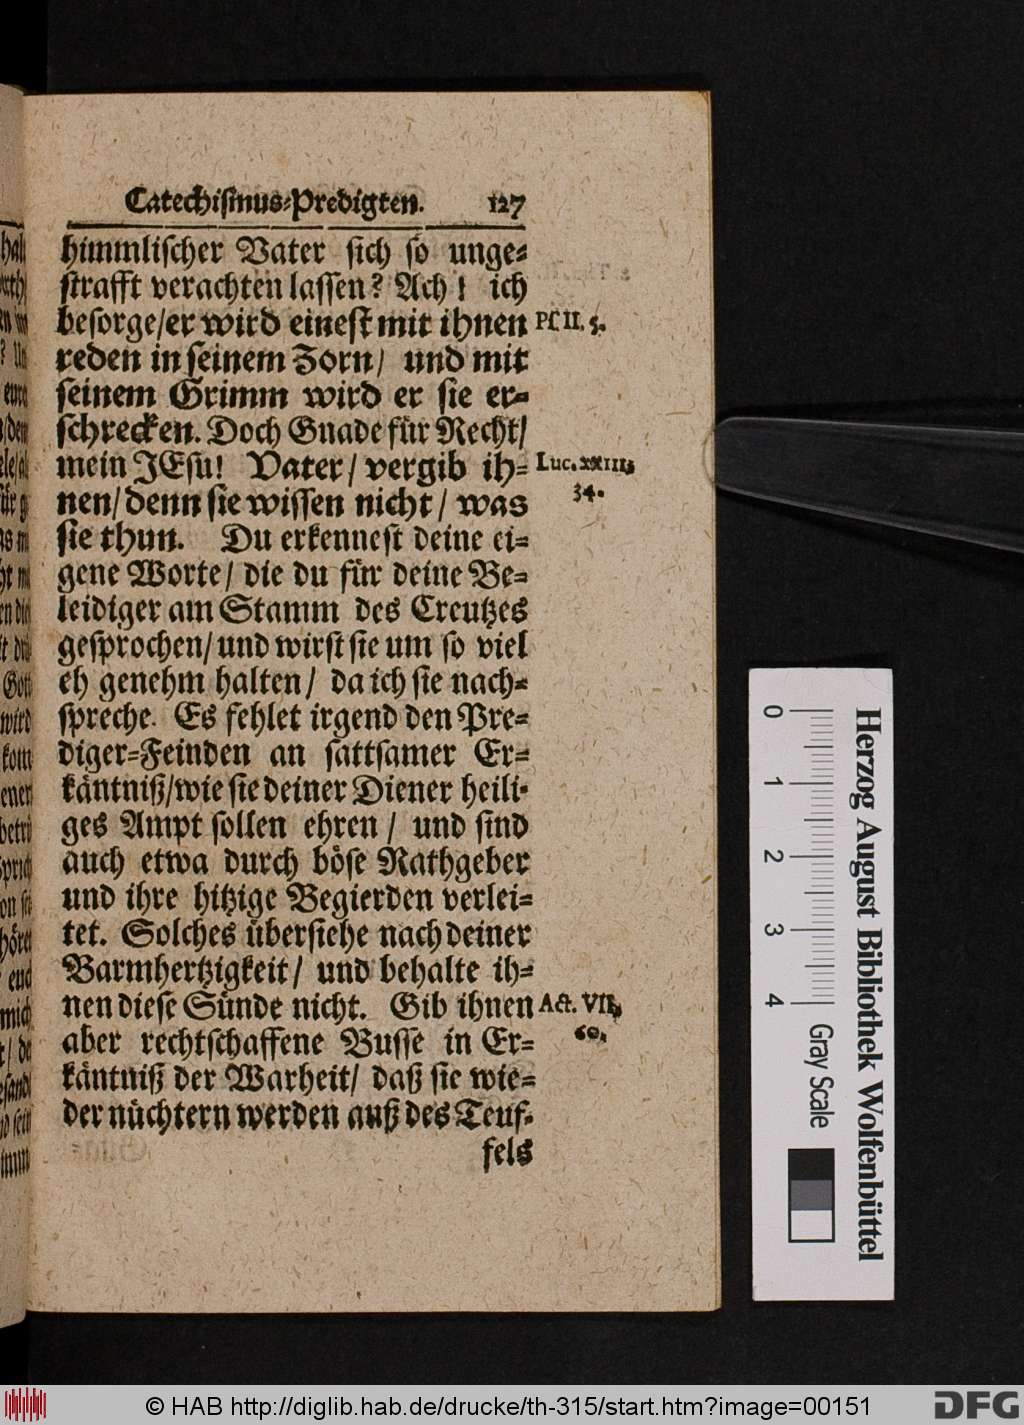 Catechismus-Predigten. 127
himmlischer Vater sich so unge-
strafft verachten lassen? Ach! ich
besorge/er wird einest mit ihnen
Ps. II. 5.
reden in seinem Zorn/ und mit
seinem Grimm wird er sie er-
schrecken. Doch Gnade für Recht/
mein JEsu! Vater/ vergib ih-
Luc. XXIII.
34.
nen/ denn sie wissen nicht/ was
sie thun. Du erkennest deine ei-
gene Worte/ die du für deine Be-
leidiger am Stamm des Creutzes
gesprochen/ und wirst sie um so viel
eh genehm halten/ da ich sie nach-
spreche. Es fehlet irgend den Pre-
diger-Feinden an sattsamer Er-
käntniß/wie sie deiner Diener heili-
ges Ampt sollen ehren/ und sind
auch etwa durch böse Rathgeber
und ihre hitzige Begierden verlei-
tet. Solches übersiehe nach deiner
Barmhertzigkeit/ und behalte ih-
nen diese Sünde nicht. Gib ihnen
Act. VII.
60.
aber rechtschaffene Busse in Er-
käntniß der Warheit/ daß sie wie-
der nüchtern werden auß des Teuf-
fels
0 1 2 3 4
Gray Scale
Herzog August Bibliothek Wolfenbüttel
© HAB http://diglib.hab.de/drucke/th-315/start.htm?image=00151
DFG